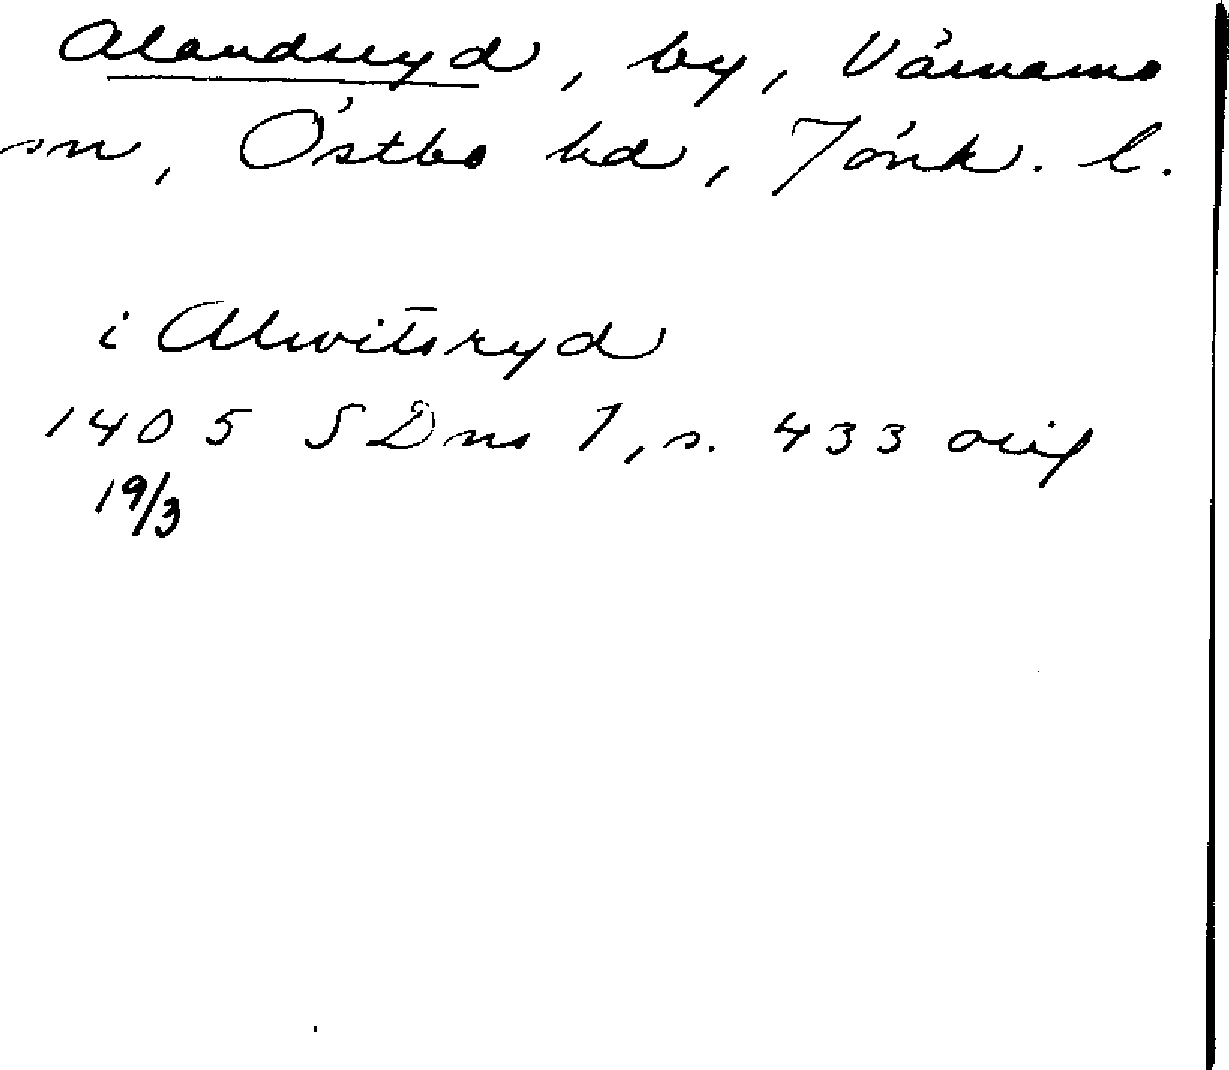 Alandsryd, by, Värnamo
sn, Östbo hd, Jönk. l.
i Alwitsryd
1405 SDns 1, s. 433 orig
19/3